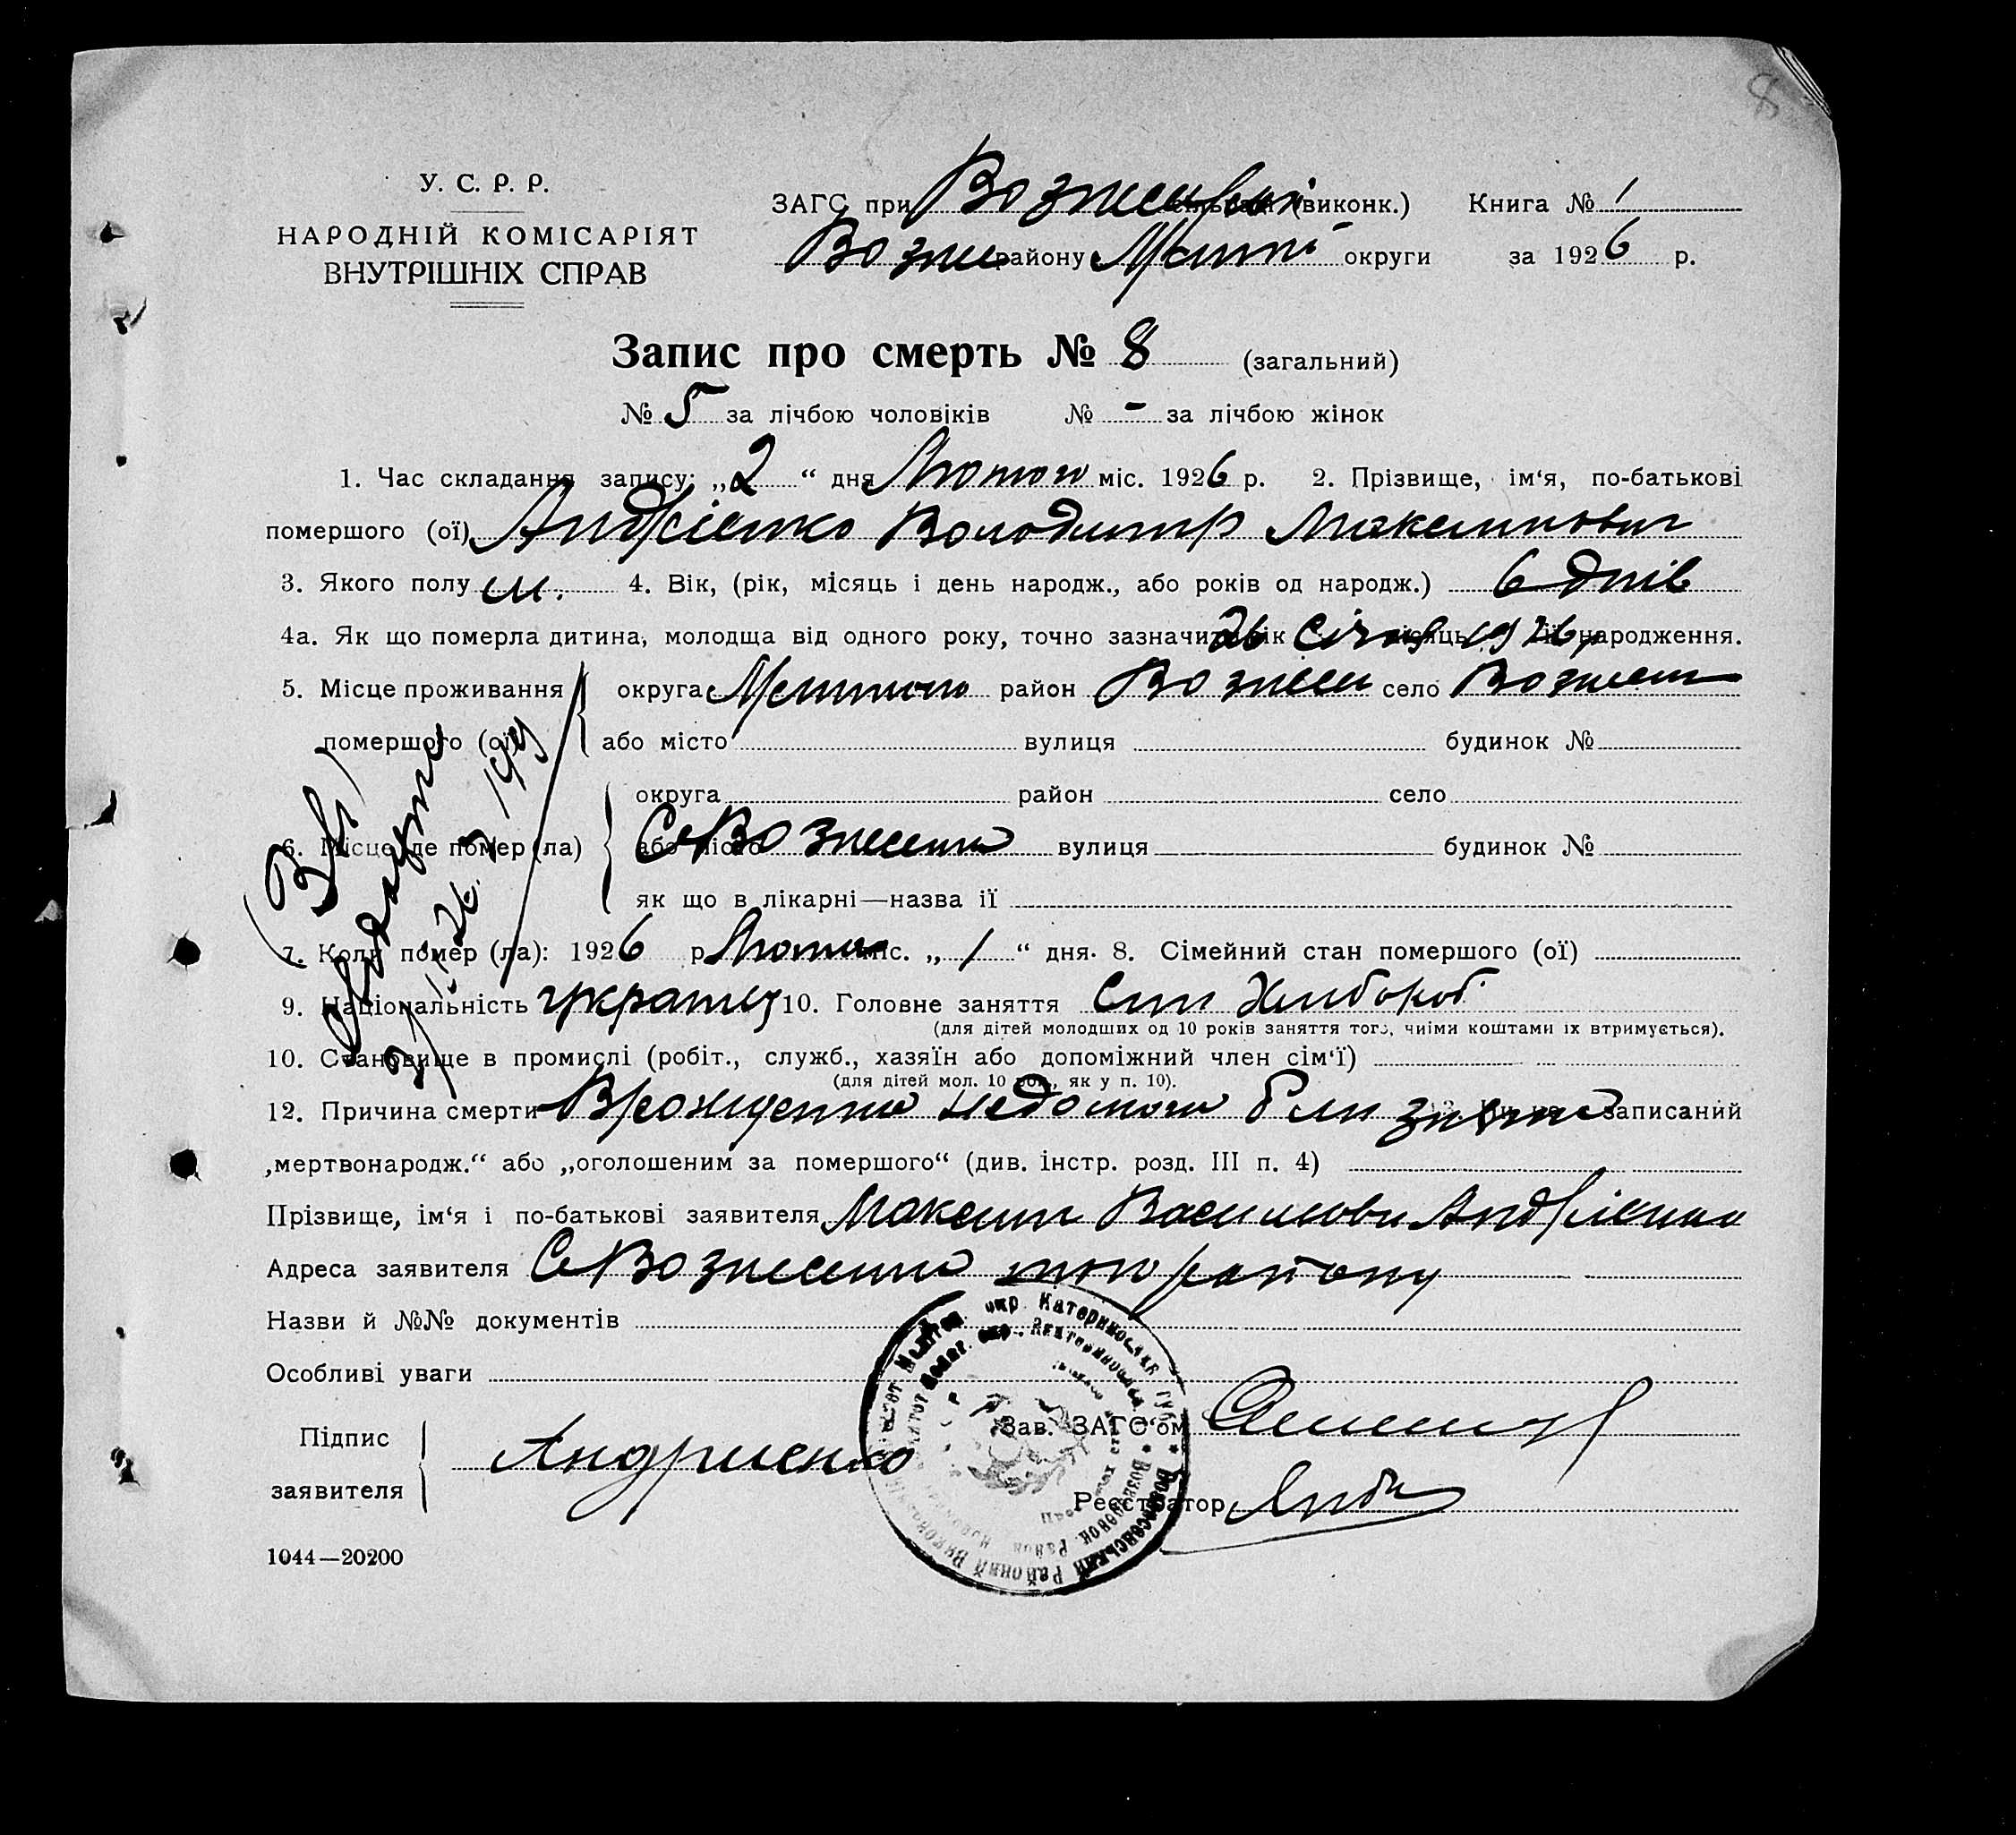 8
У. С. Р. Р.
НАРОДНІЙ КОМІСАРІЯТ
ВНУТРІШНІХ СПРАВ
ЗАГС при (виконк.) Книга № 1
Возне району округи за 1926 р.
Запис про смерть № 8 (загальний)
№ 5 за лічбою чоловіків № - за лічбою жінок
1. Час складання запису: „2“ дня Лютого міс. 1926 р. 2. Прізвище, ім‘я, по-батькові
помершого (ої) Андрієнко Володимир Максимович
3. Якого полу м. 4. Вік, (рік, місяць і день народж., або років од народж.) 6 днів
4а. Як що померла дитина, молодща від одного року, точно зазначити рік 26 Січня місяць 1926 р її народження.
5. Місце проживання округа район Вознесен село Вознесен
помершого (ої) або місто вулиця будинок №
округа район село
6. Місце де помер (ла) або місто С Вознесенка вулиця будинок №
як що в лікарні—назва ії
7. Коли помер (ла): 1926 р Лютого міс. „1“ дня. 8. Сімейний стан помершого (ої)
9. Національність українец 10. Головне заняття Син Хлибороб.
(для дітей молодших од 10 років заняття того, чиїми коштами їх втримується).
10. Становище в промислі (робіт., служб., хазяїн або допоміжний член сім‘ї)
(для дітей мол. 10 рок., як у п. 10).
12. Причина смерти близня записаний
„мертвонародж.“ або „оголошеним за помершого“ (див. інстр. розд. III п. 4)
Прізвище, ім‘я і по-батькові заявителя Максим Василиови Андрієнко
Адреса заявителя С Вознесенка того району
Назви й №№ документів
Особливі уваги
Підпис заявителя Андриенко
Зав. ЗАГС‘ом
Реєстратор
1044—20200